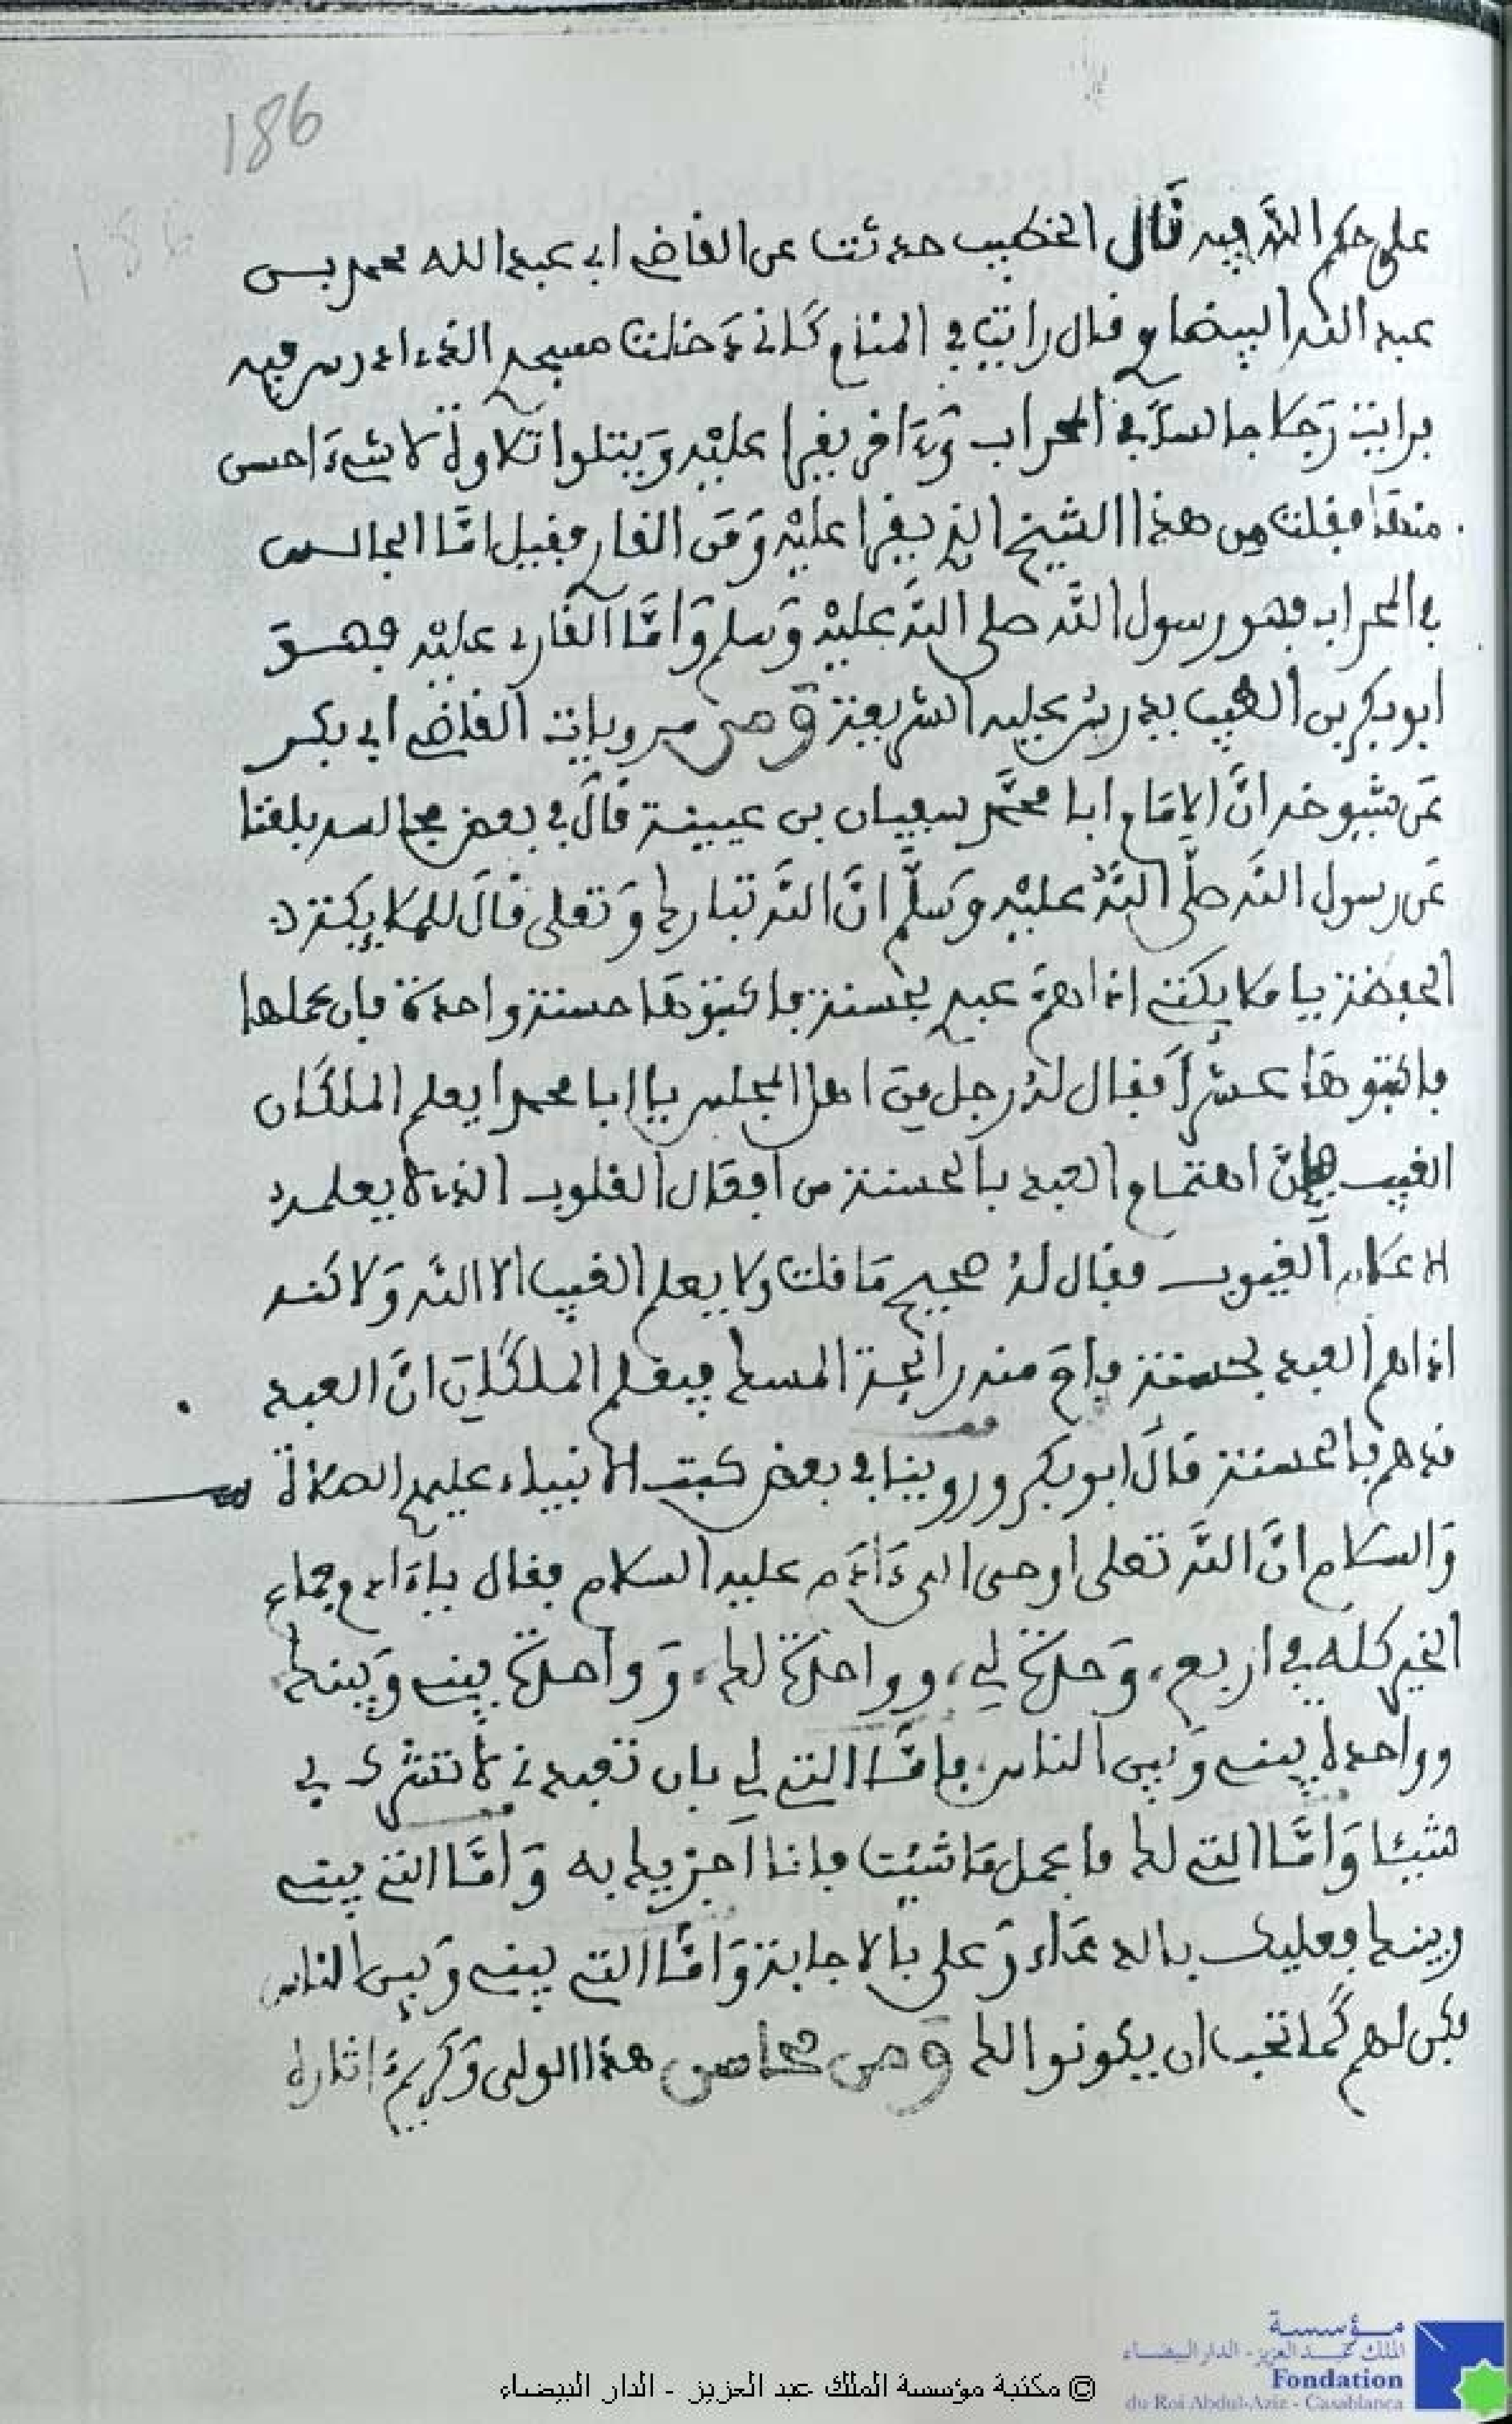 186
186
على حكم الله فيه قال الخطيب حدثت عن القاضي ابي عبد الله محمد بن
عبد الله البيضاوي قال رايت في المنام كاني دخلت مسجد الذي ادرس فيه
فرايت رجلا جالسا في المحراب وءاخر يقرا عليه ويتلوا تلاوة لا شيء احسن
منها فقلت من هذا الشيخ الذي يقرا عليه ومن القار فقيل اما الجالس
في المحراب فهو رسول الله صلى الله عليه وسلم واما القاري عليه فهو
ابو بكر بن الطيب يدرس عليه الشريعة ومن مرويات القاضي ابي بكر
عن شيوخه ان الامام ابا محمد سفيان بن عيينة قال في بعض مجالسه بلغنا
عن رسول الله صلى الله عليه وسلم ان الله تبارك وتعلى قال للملايكة
الحفظة يا ملايكتي اذا هم عبدي بحسنة فاكتبوها حسنة واحدة فان عملها
فاكتبوها عشرا فقال له رجل من اهل المجلس يا ابا محمد ايعلم الملكان
الغيب فان اهتمام العبد بالحسنة من افعال القلوب الذي لا يعلمه
الا علام الغيوب فقال له صحيح ما قلت ولا يعلم الغيب الا الله ولاكنه
اذا هم العبد بحسنة فاح منه رايحة المسك فيعلم الملكان ان العبد
قد هم بالحسنة قال ابو بكر وروينا في بعض كتب الانبياء عليهم الصلاة
والسلام ان الله تعلى اوحى الى ءادم عليه السلام فقال يا ءادم جماع
الخير كله في اربع، وحدة لي، وواحدة لك، وواحدة بيني وبينك
وواحدة بيني وبين الناس، فاما التي لي بان تعبدني لا تشرك بي
شيئا واما التي لك فاعمل ما شيت فانا اجزيك به واما التي بيني
وبينك فعليك بالدعاء وعلي بالاجابة واما التي بيني وبين الناس
فكن لهم كما تحب ان يكونوا لك ومن محاسن هذا الولي وكريم اثاره
مؤسسة
الملك عبد العزيز - الدار البيضاء
Fondation
du Roi Abdul-Aziz - Casablanca
© مكتبة مؤسسة الملك عبد العزيز - الدار البيضاء